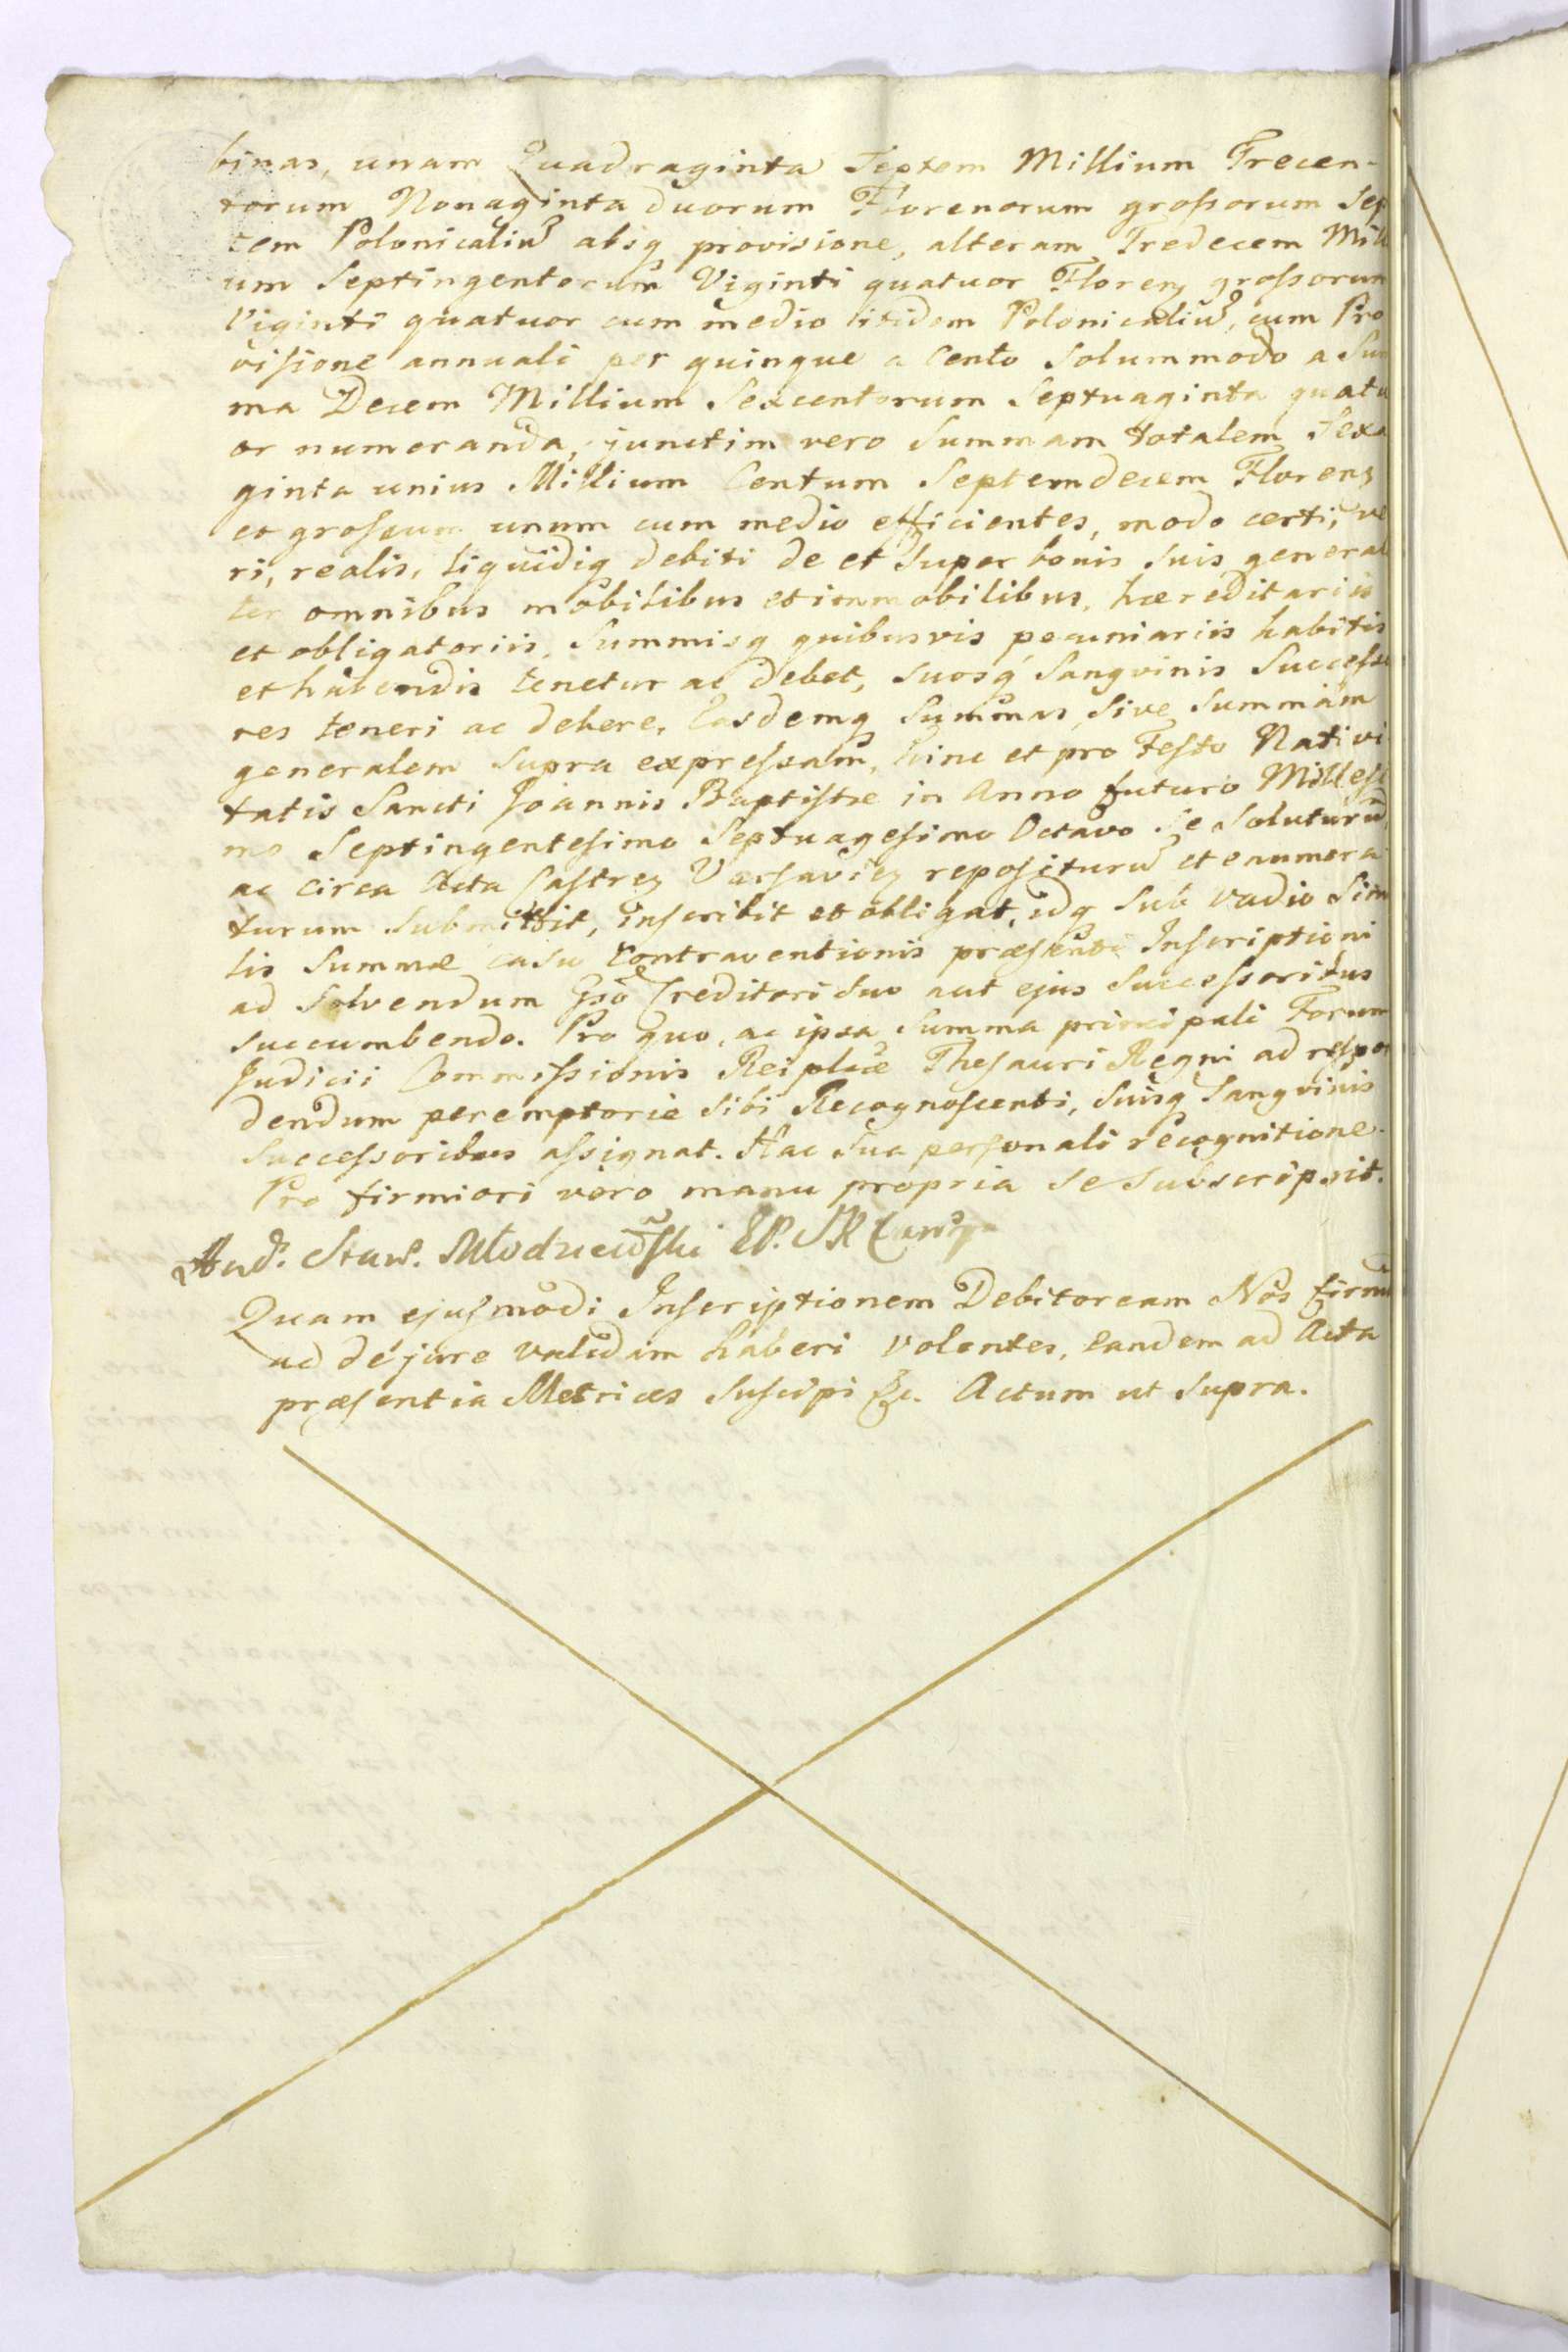 binas, unam Quadraginta Septem Millium Trecen-
torum Nonaginta duorum Florenorum grossorum Sep
tem Polonicaliũ absq provisione, alteram Tredecem Milli
um Septingentorum Viginti quatuor Floreny grossorum
Viginti quatuor cum medio itidem Polonicaliũ, cum Pro
visione annuali per quinque a Cento Solummodo a Sum
ma Decem Millium Sexcentorum Septuaginta quatu
or numeranda, junctim vero Summam totalem Sexa
ginta unius Millium Centum Septemdecem Floreny
et grossum unum cum medio efficientes, modo certi, ve
ri, realis, liquidiq debiti de et Super bonis Suis general
ter omnibus mobilibus et immobilibus, hæreditariis
et obligatoriis, Summisq quibusvis pecuniariis habitis
et habendis tenetur ac debet, Suosq Sangvinis Successo
res teneri ac debere, Easdemq Summas, Sive Summam
generalem Supra expressam, hinc et pro Festo Nativi
tatis Sancti Joannis Baptistæ in Anno futuro Millesi
mo Septingentesimo Septuagesimo Octavo Se Soluturũ,
ac circa Acta Castreny Varsavieny repositurũ et enumera
turum Submittit, inscribit et obligat, idq Sub vadio Simi
lis Summæ casu Contraventionis præsenti Inscriptioni
ad Solvendum Gso Creditori Suo aut ejus Successoribus
Succumbendo. Pro quo, ac ipsa Summa principali Forum
Judicii Commissionis Reiplcæ Thesauri Regni ad respon
dendum peremptorie Sibi Recognoscenti, Suisq Sangvinis
Successoribus assignat. Hac Sua personali recognitione.
Pro firmiori vero manu propria Se Subscripsit.
And. Stan. Młodzieiowski EP.
Quam ejusmodi Inscriptionem Debitoream Nos firm
ac de jure validam haberi Volentes, Eandem ad Acta
præsentia Metrices Suscipi &c. Actum ut Supra.